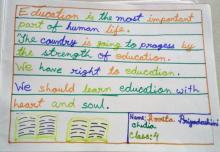 Education is the most important
part of human life.
The country is going to progess by
the strength of education.
We have right to education.
We should learn education with
heart and soul.
Name: Amrita Priyadarshini
class: 4